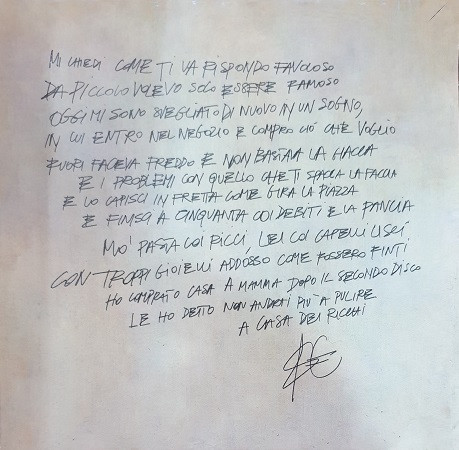 MI CHIEDI COME TI VA RISPONDO FAVOLOSO
DA PICCOLO VOLEVO SOLO ESSERE FAMOSO
OGGI MI SONO SVEGLIATO DI NUOVO IN UN SOGNO,
IN CUI ENTRO NEL NEGOZIO E COMPRO CIÓ CHE VOGLIO
FUORI FACEVA FREDDO E NON BASTAVA LA GIACCA
E I PROBLEMI CON QUELLO CHE TI SPACCA LA FACCIA
E LO CAPISCI IN FRETTA COME GIRA LA PIAZZA
E FINISCI A CINQUANTA COI DEBITI E LA PANCIA
MO' PASTA COI RICCI, LEI COI CAPELLI LISCI
CON TROPPI GIOIELLI ADDOSSO COME FOSSERO FINTI
HO COMPRATO CASA A MAMMA DOPO IL SECONDO DISCO
LE HO DETTO NON ANDRAI PIÙ A PULIRE
A CASA DEI RICCHI